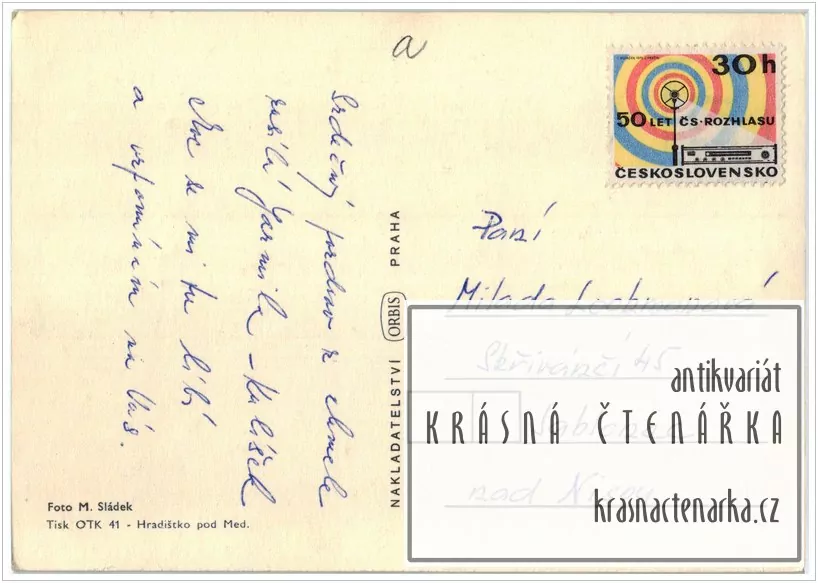 a
30h
50 LET ČS·ROZHLASU
ČESKOSLOVENSKO
Srdečný pozdrav z chmele
zasílá Jarmila - Kulíšek
Moc se mi tu líbí
a vzpomínám na Vás.
NAKLADATELSTVÍ ORBIS PRAHA
Paní
Milada
Skřivánčí 45
Jablonec
nad Nisou
Foto M. Sládek
Tisk OTK 41 - Hradištko pod Med.
antikvariát
KRÁSNÁ ČTENÁŘKA
krasnactenarka.cz